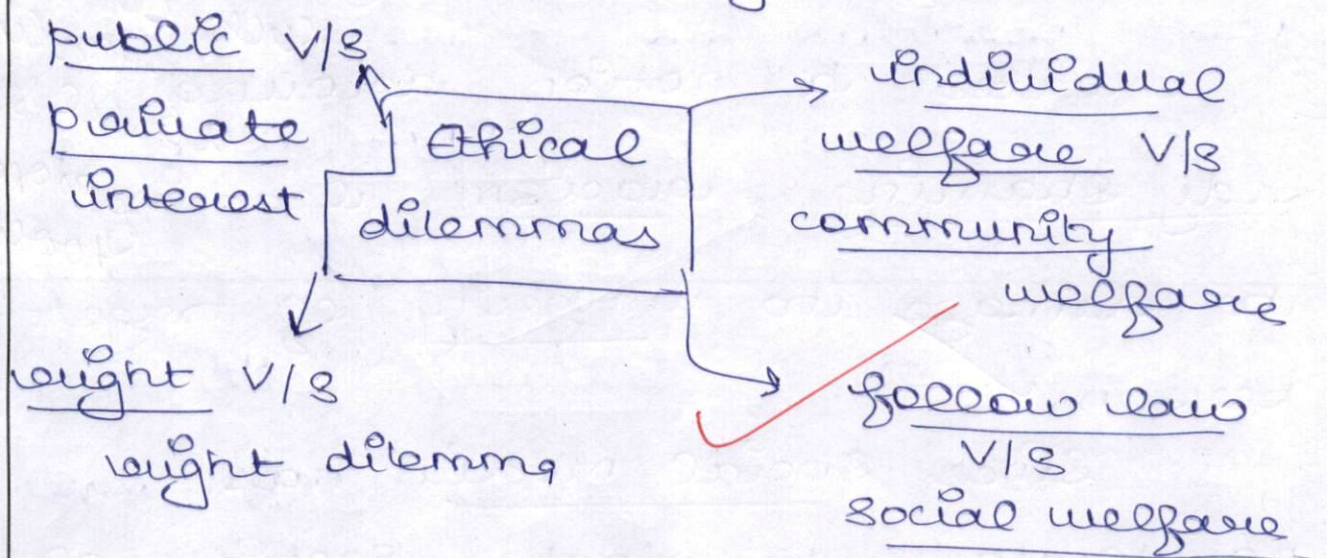 public V/S
private
interest
Ethical
dilemmas
individual
welfare V/S
community
welfare
right V/S
right dilemma
follow law
V/S
social welfare